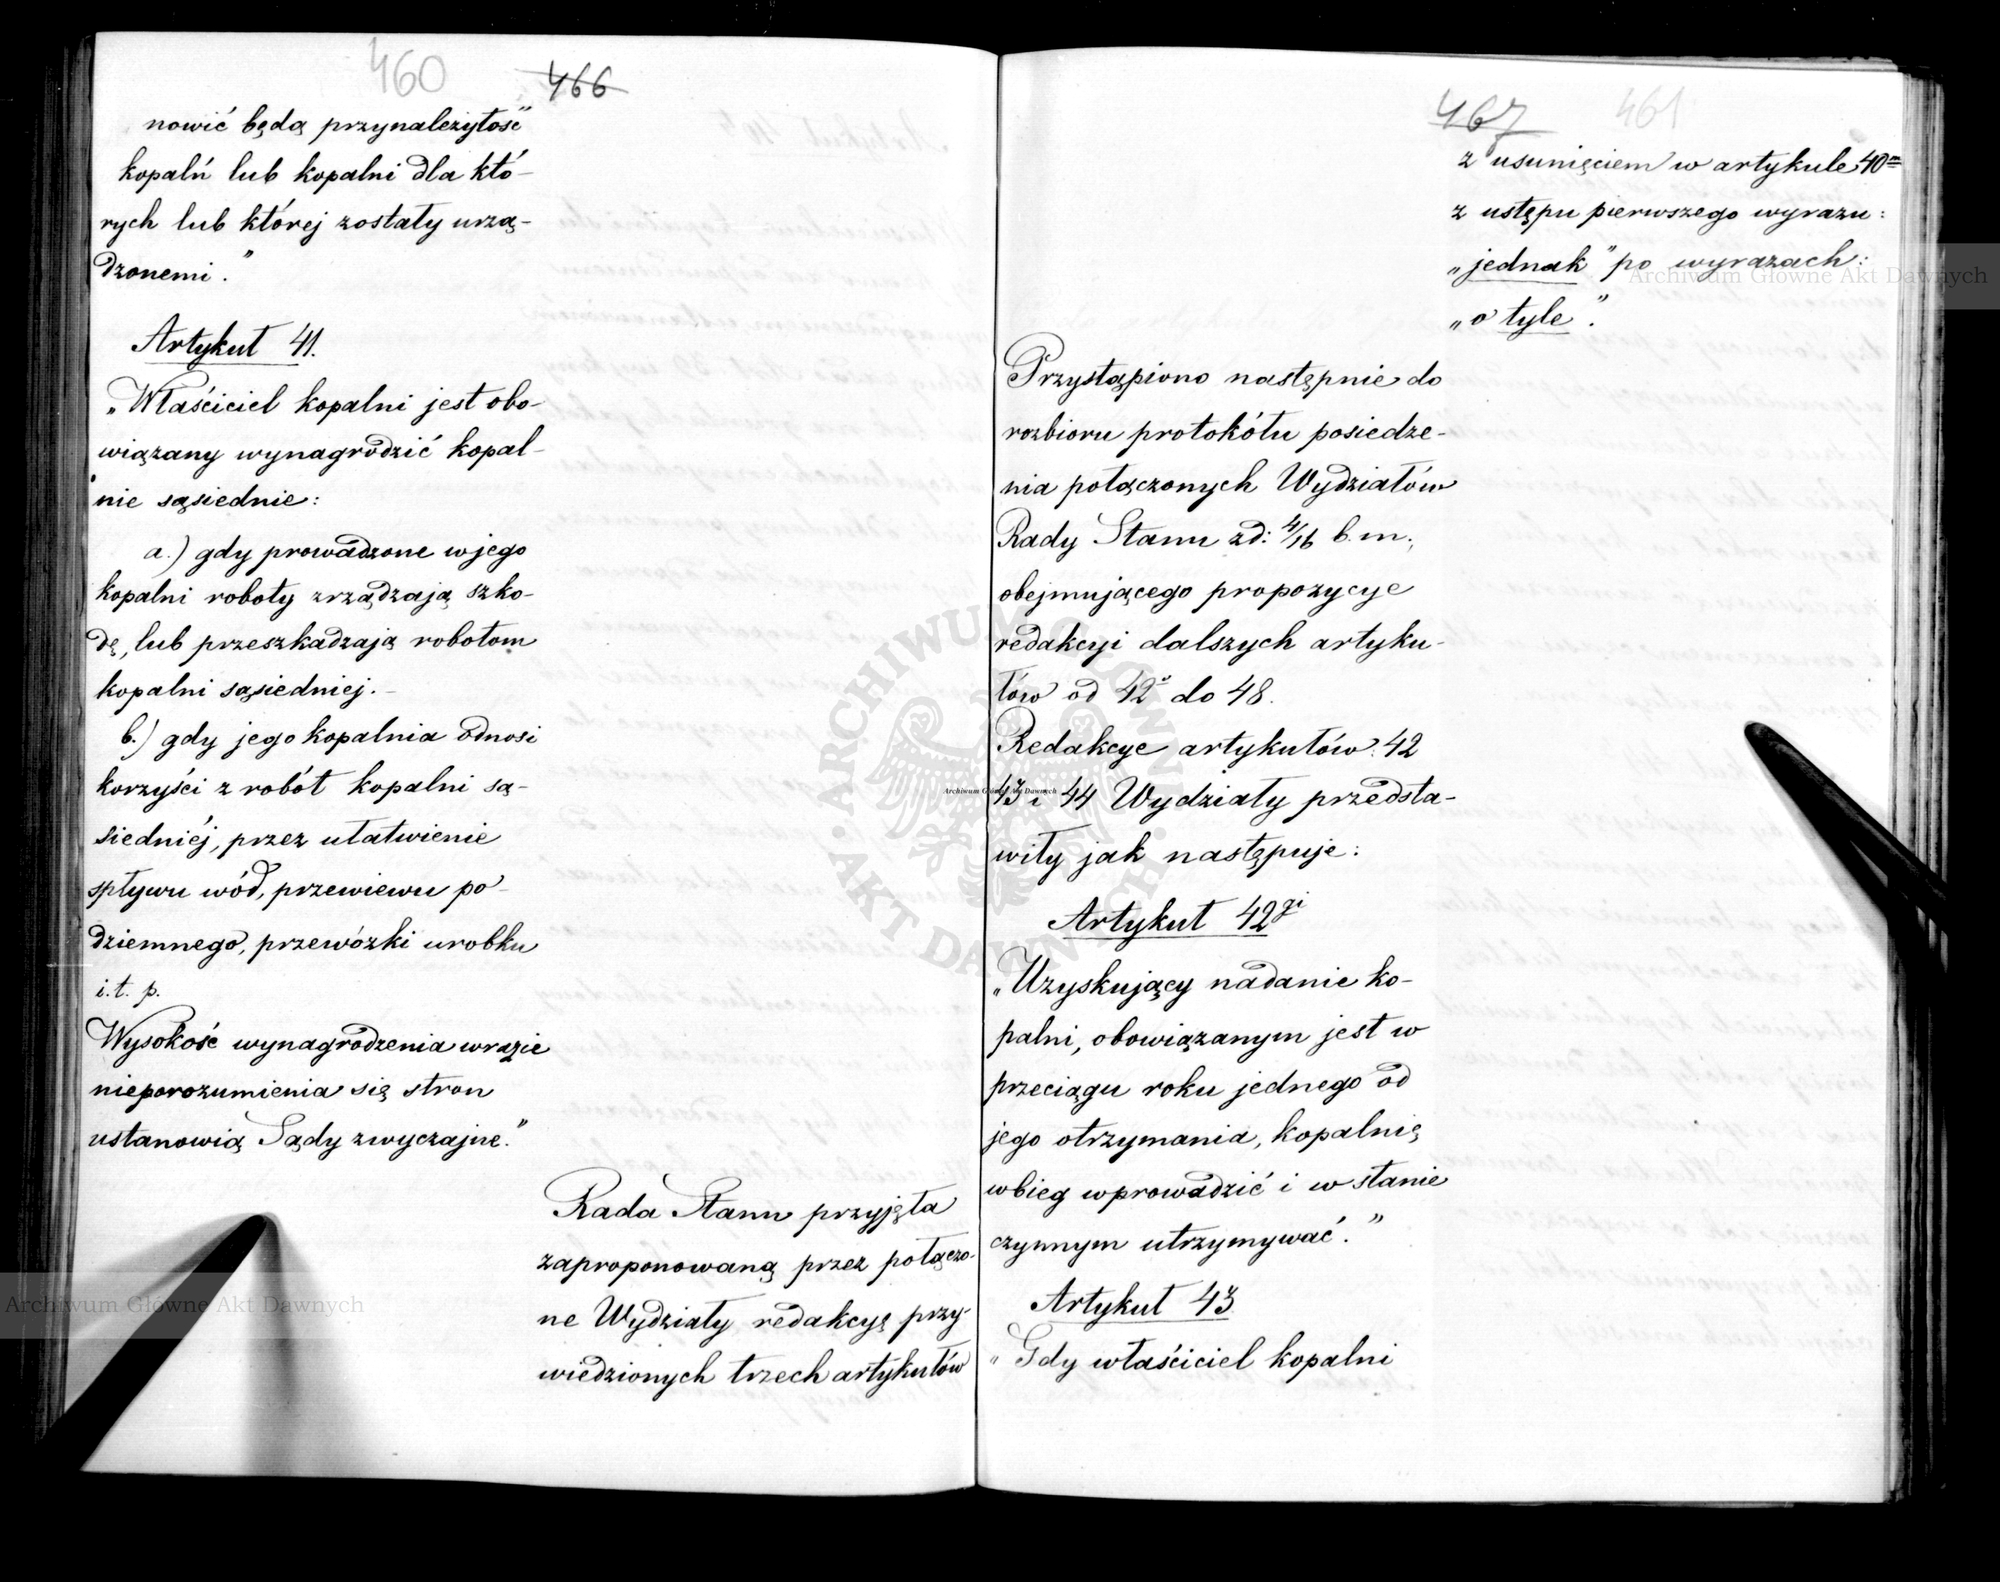 460 466
nowić będą przynależytość
kopalń lub kopalni dla któ-
rych lub której zostały urzą-
dzonemi."
Artykuł 41.
„Właściciel kopalni jest obo-
wiązany wynagrodzić kopal-
nie sąsiednie:
a.) gdy prowadzone w jego
kopalni roboty zrządzają szko-
dę, lub przeszkadzają robotom
kopalni sąsiedniej.-
b.) gdy jego kopalnia odnosi
korzyści z robót kopalni są-
siedniéj, przez ułatwienie
spływu wód, przewiewu po-
dziemnego, przewózki urobku
i.t.p.
Wysokość wynagrodzenia w razie
nieporozumienia się stron
ustanowią Sądy zwyczajne."
Rada Stanu przyjęła
zaproponowaną przez połączo-
ne Wydziały redakcyę przy-
wiedzionych trzech artykułów
467 461
z usunięciem w artykule 40m
z ustępu pierwszego wyrazu:
„jednak" po wyrazach:
„o tyle".
Przystąpiono następnie do
rozbioru protokółu posiedze-
nia połączonych Wydziałów
Rady Stanu z d: 4/16 b.m.,
obejmującego propozycye
redakcyi dalszych artyku-
łów od 42o do 48.
Redakcye artykułów: 42
43 i 44 Wydziały przedsta-
wiły jak następuje:
Artykuł 42gi
„Uzyskujący nadanie ko-
palni, obowiązanym jest w
przeciągu roku jednego od
jego otrzymania, kopalnię
w bieg wprowadzić i w stanie
czynnym utrzymywać."
Artykuł 43
„Gdy właściciel kopalni
Archiwum Główne Akt Dawnych
Archiwum Główne Akt Dawnych
Archiwum Główne Akt Dawnych
ARCHIWUM GŁÓWNE AKT DAWNYCH